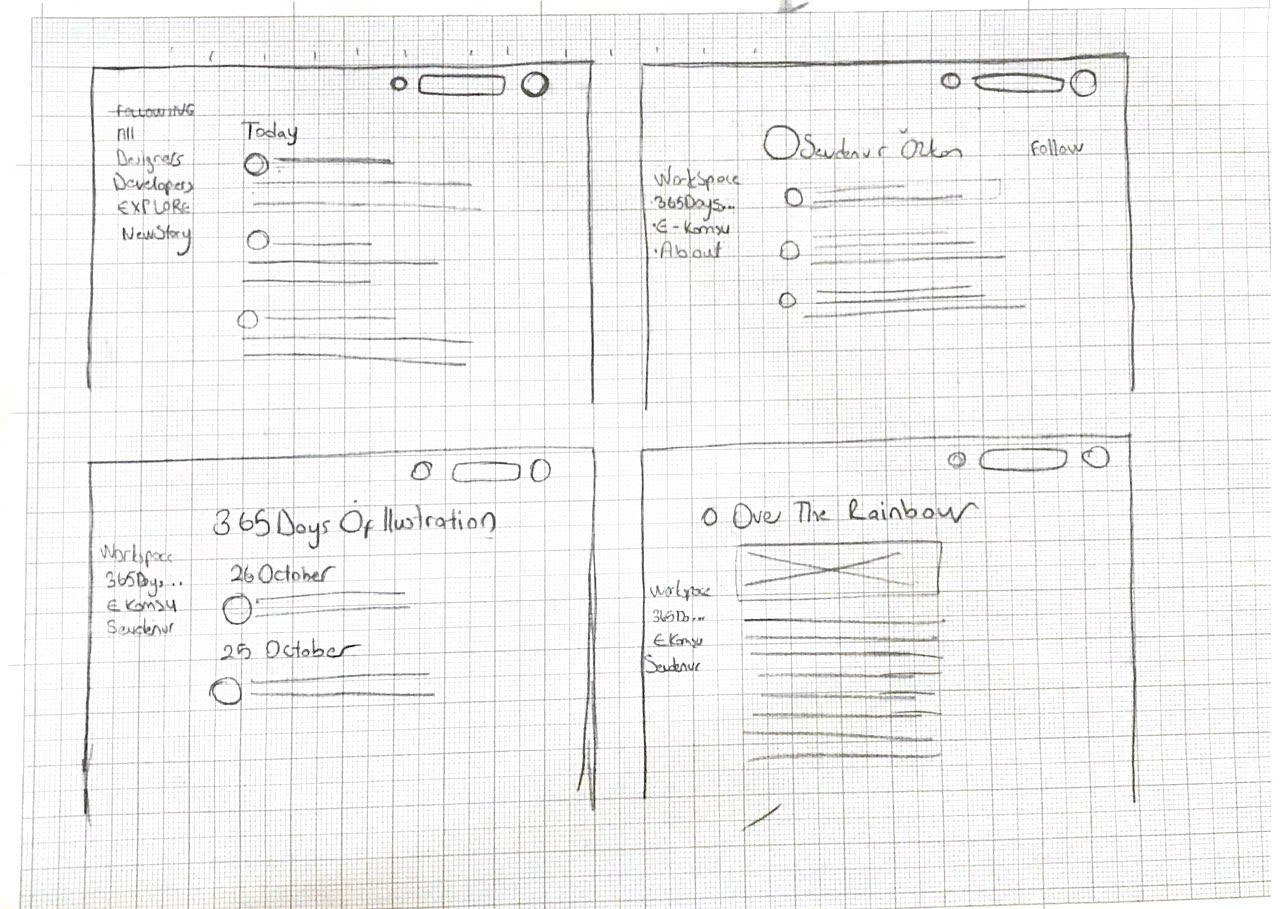 FOLLOWING
All
Designers
Developers
EXPLORE
New Story
Today
Sevdenur Özkan
Follow
Workspace
·365Days...
·E-Komşu
·About
365 Days Of Ilustration
Workspace
365Days...
E Komşu
Sevdenur
26 October
25 October
Over The Rainbow
Workspace
365Da...
E Komşu
Sevdenur